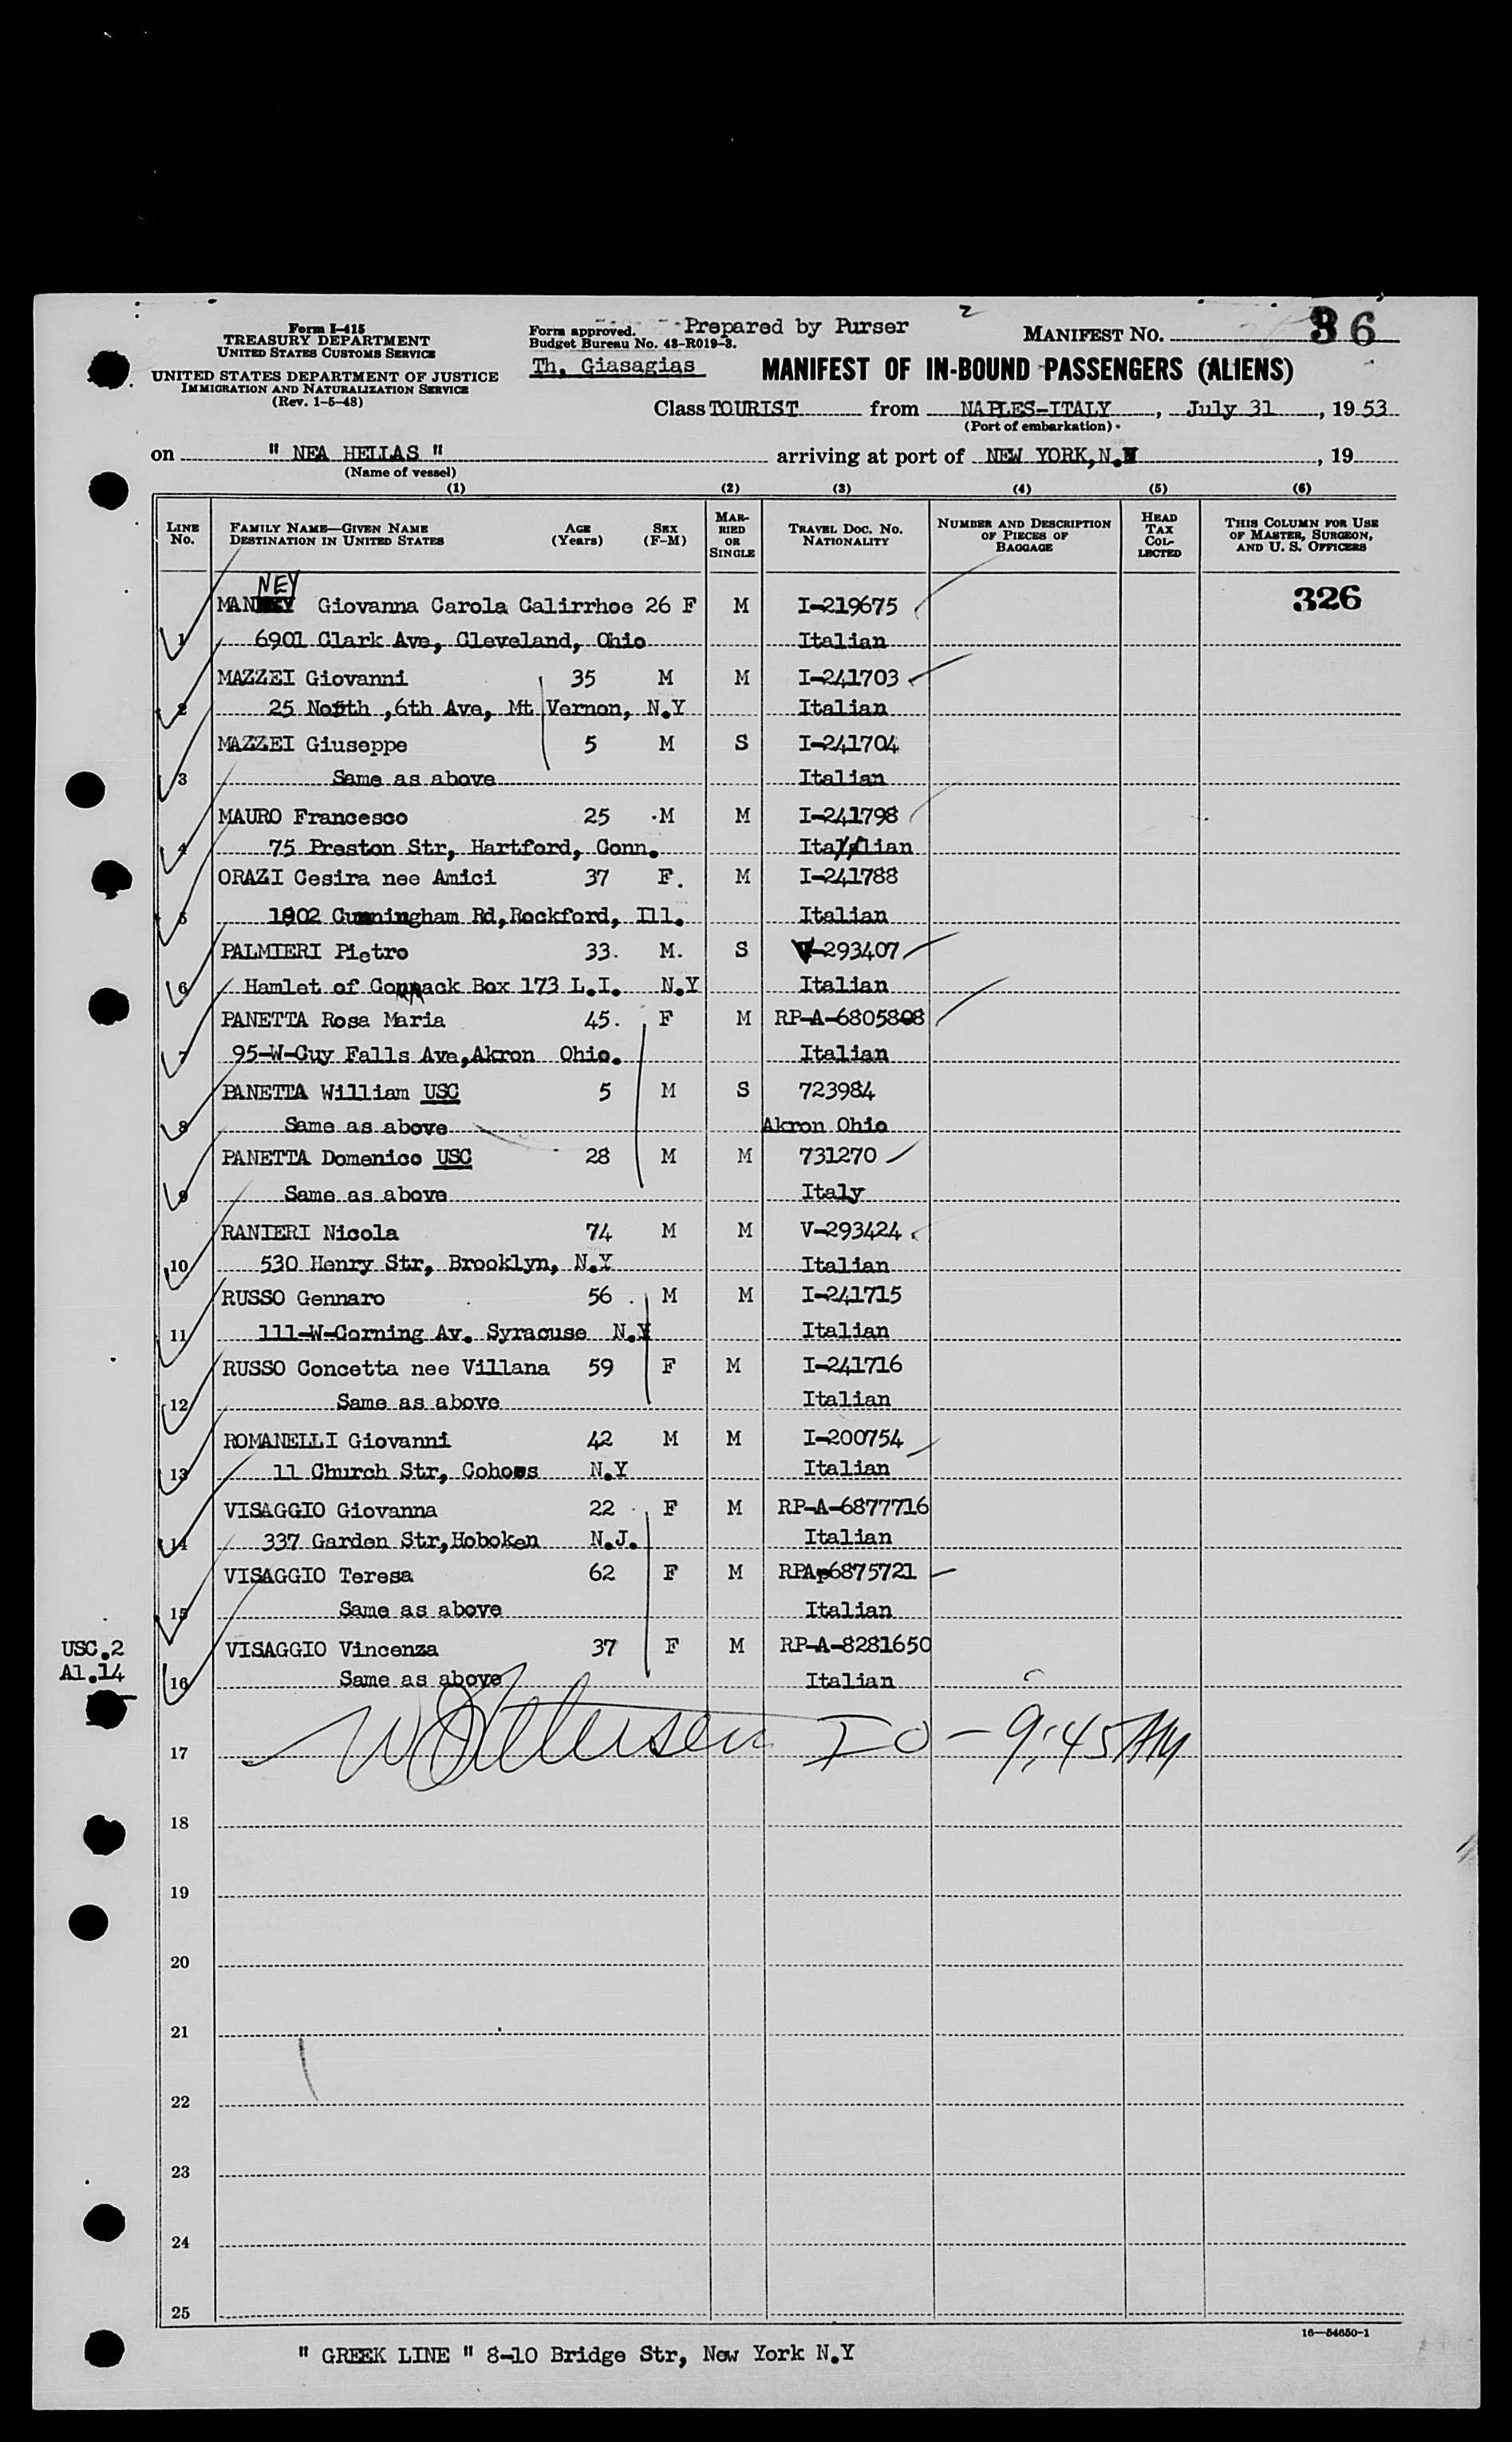 Form I-415
TREASURY DEPARTMENT
UNITED STATES CUSTOMS SERVICE
UNITED STATES DEPARTMENT OF JUSTICE
IMMIGRATION AND NATURALIZATION SERVICE
(Rev. 1-5-48)
Form approved. Prepared by Purser
Budget Bureau No. 43-R019-3.
Th. Giasagias
MANIFEST No. 36
MANIFEST OF IN-BOUND PASSENGERS (ALIENS)
Class TOURIST from NAPLES-ITALY, July 31, 19 53
(Port of embarkation)
on " NEA HELLAS " arriving at port of NEW YORK, N.Y, 19
(Name of vessel)
(1) (2) (3) (4) (5) (6)
LINE No. FAMILY NAME—GIVEN NAME DESTINATION IN UNITED STATES AGE (Years) SEX (F-M) MARRIED OR SINGLE TRAVEL DOC. NO. NATIONALITY NUMBER AND DESCRIPTION OF PIECES OF BAGGAGE HEAD TAX COLLECTED THIS COLUMN FOR USE OF MASTER, SURGEON, AND U. S. OFFICERS
NEY
MAN Giovanna Carola Calirrhoe 26 F M I-219675 326
1 6901 Clark Ave, Cleveland, Ohio Italian
MAZZEI Giovanni 35 M M I-241703
2 25 North ,6th Ave, Mt Vernon, N.Y Italian
MAZZEI Giuseppe 5 M S I-241704
3 Same as above Italian
MAURO Francesco 25 M M I-241798
4 75 Preston Str, Hartford, Conn. Italian
ORAZI Cesira nee Amici 37 F. M I-241788
5 1902 Cunningham Rd,Rockford, Ill. Italian
PALMIERI Pietro 33. M. S V-293407
6 Hamlet of Commack Box 173 L.I. N.Y Italian
PANETTA Rosa Maria 45. F M RP-A-6805808
7 95-W-Cuy Falls Ave,Akron Ohio. Italian
PANETTA William USC 5 M S 723984
8 Same as above Akron Ohio
PANETTA Domenico USC 28 M M 731270
9 Same as above Italy
RANIERI Nicola 74 M M V-293424
10 530 Henry Str, Brooklyn, N.Y Italian
RUSSO Gennaro 56 M M I-241715
11 111-W-Corning Av. Syracuse N.Y Italian
RUSSO Concetta nee Villana 59 F M I-241716
12 Same as above Italian
ROMANELLI Giovanni 42 M M I-200754
13 11 Church Str, Cohoes N.Y Italian
VISAGGIO Giovanna 22 F M RP-A-6877716
14 337 Garden Str,Hoboken N.J. Italian
VISAGGIO Teresa 62 F M RPA-6875721
15 Same as above Italian
USC.2 VISAGGIO Vincenza 37 F M RP-A-8281650
Al.14 16 Same as above Italian
17 IO - 9:45 AM
18
19
20
21
22
23
24
25
16—54650-1
" GREEK LINE " 8-10 Bridge Str, New York N.Y